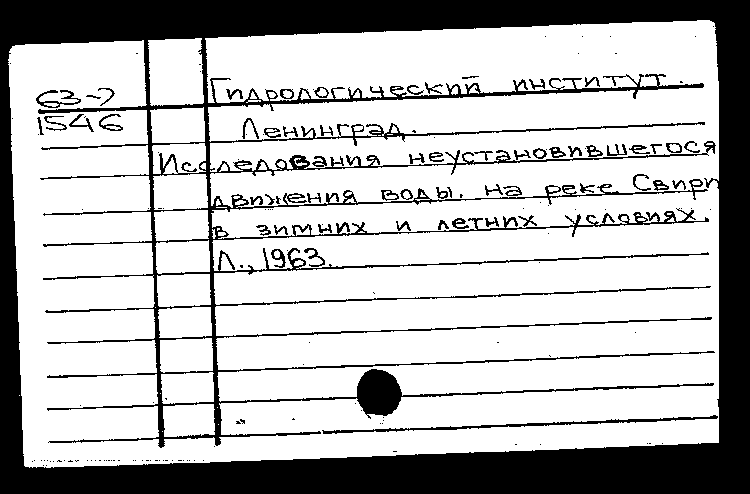 63-7
1546
Гидрологический институт.
Ленинград.
Исследования неустановившегося
движения воды. на реке Свири
в зимних и летних условиях.
Л., 1963.